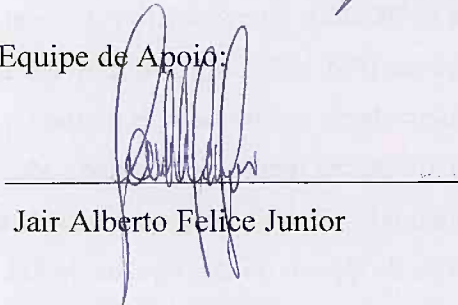 Equipe de Apoio:
Jair Alberto Felice Junior